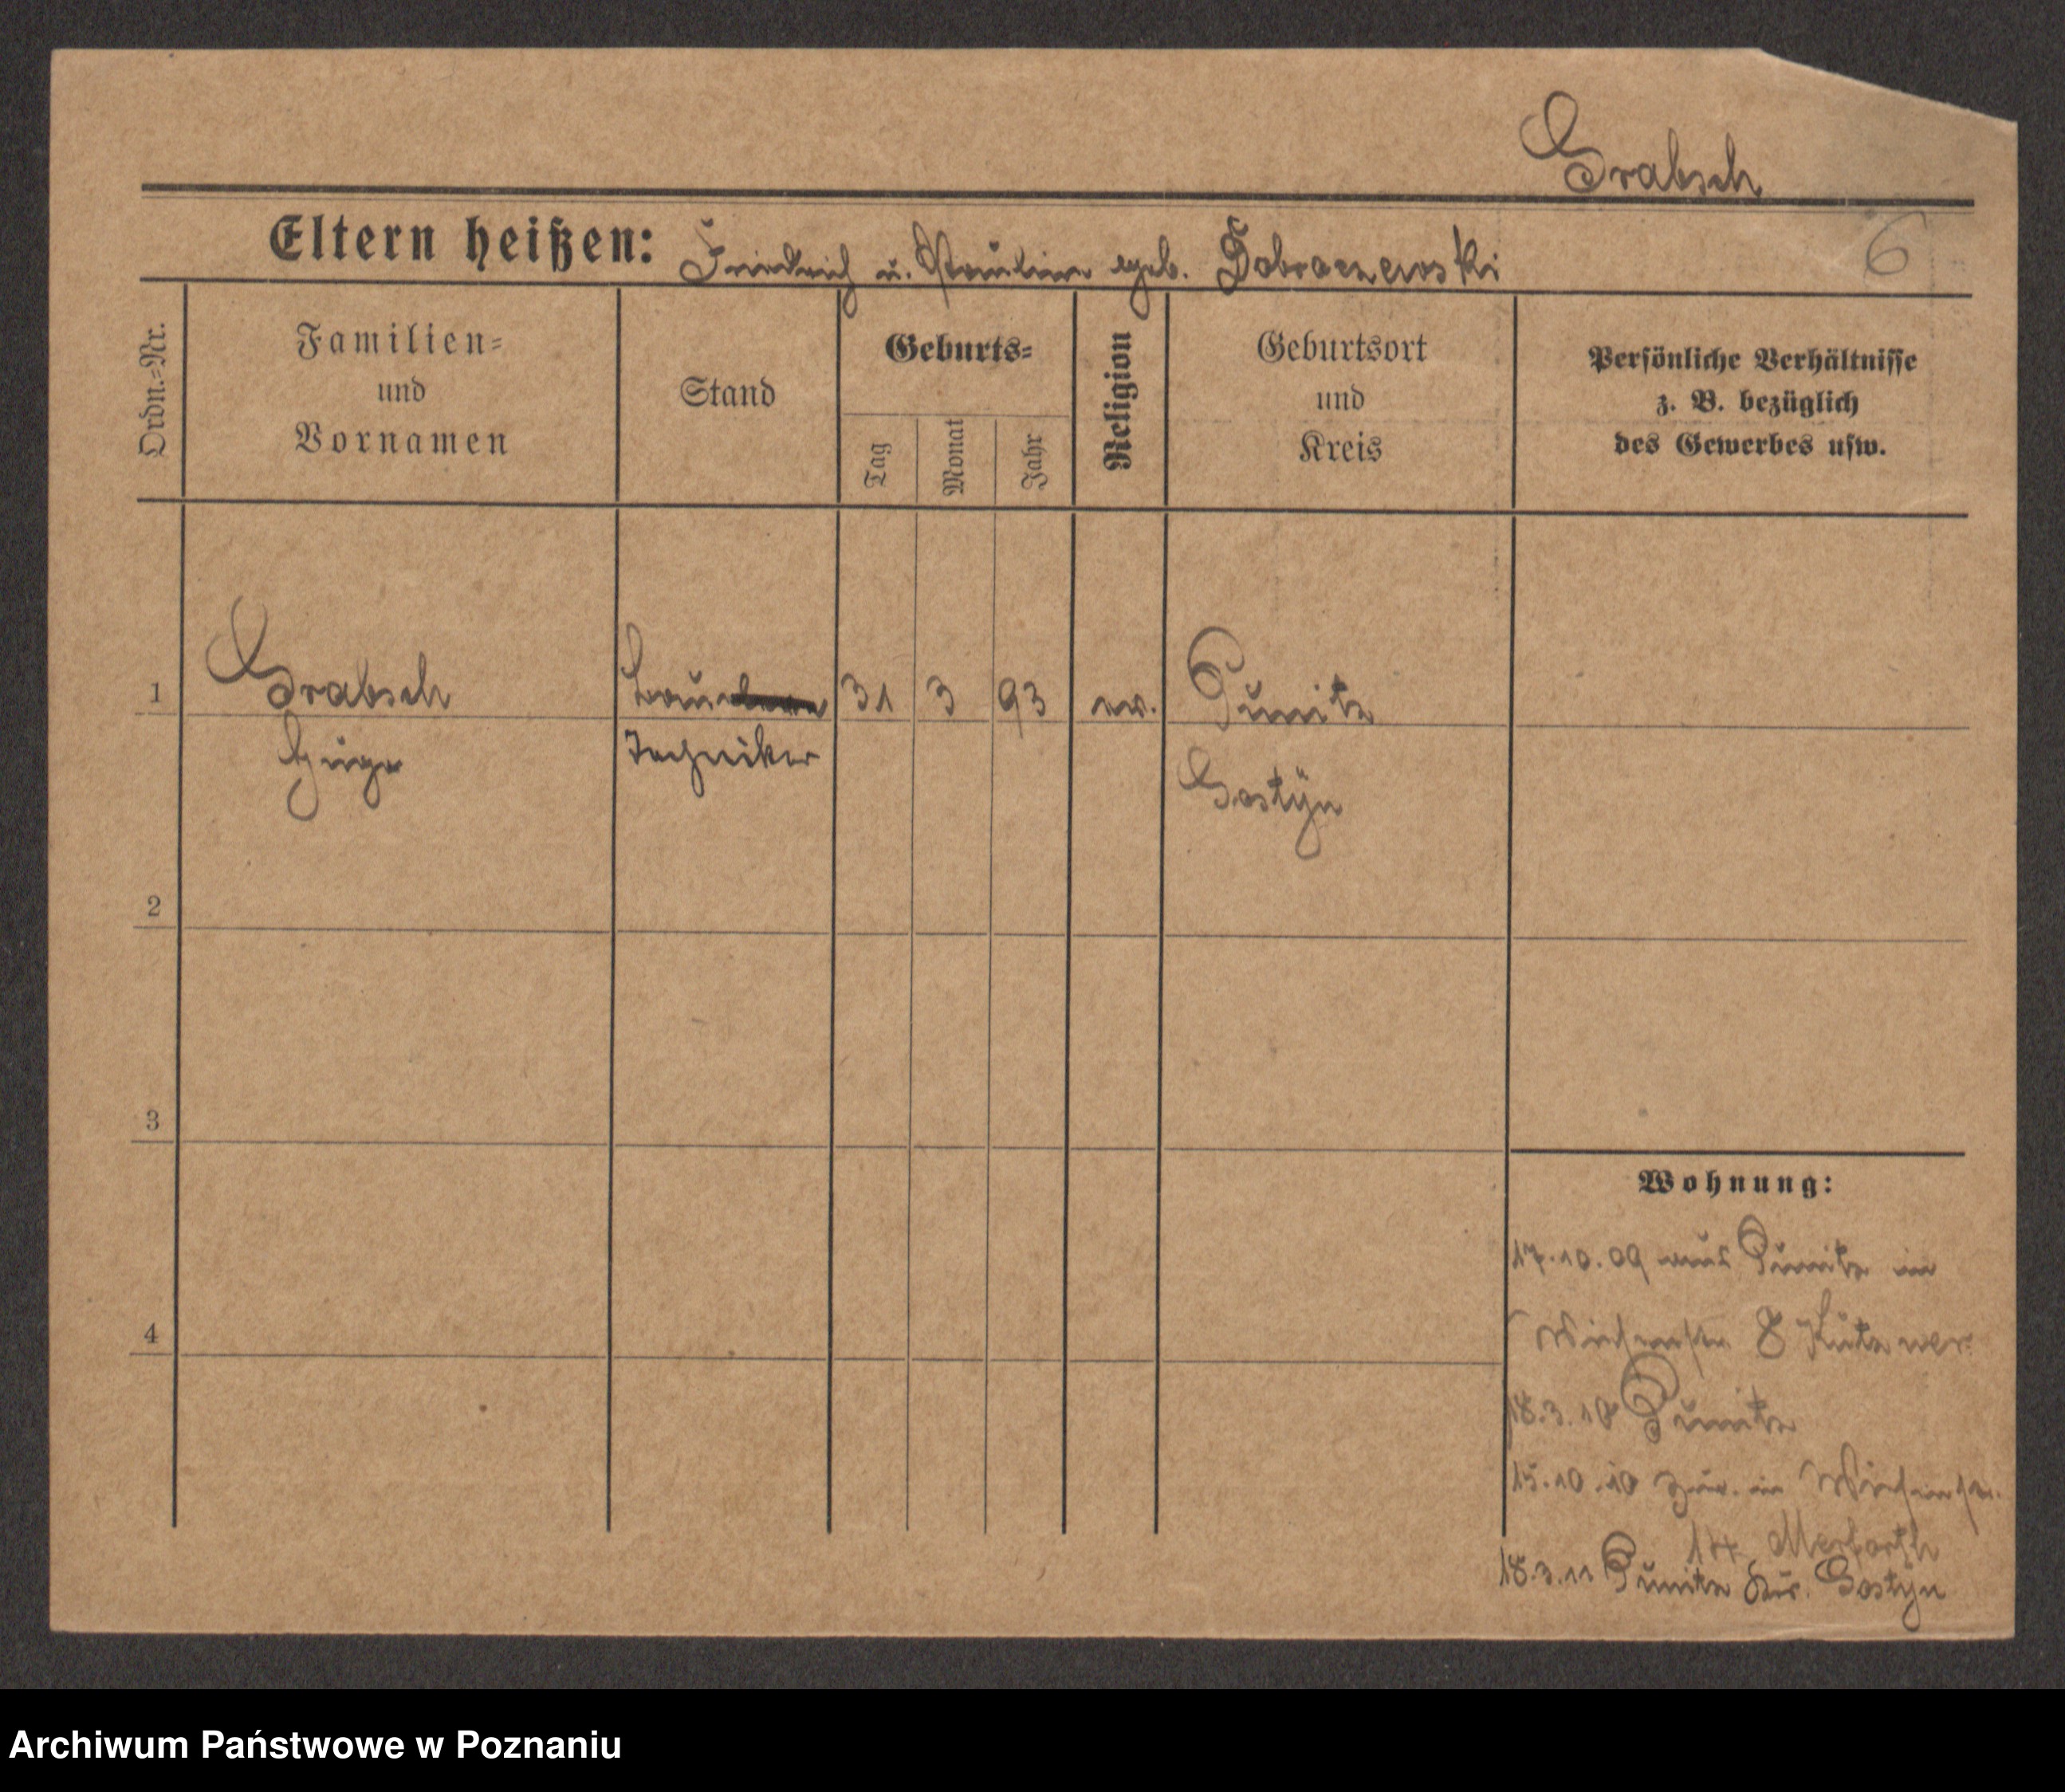 Grabsch
6
Eltern heißen: Friedrich u. Pauline geb. Dobraczewski
Ordn.-Nr.
Familien-
und
Vornamen
Stand
Geburts-
Tag
Monat
Jahr
Religion
Geburtsort
und
Kreis
Persönliche Verhältnisse
z. B. bezüglich
des Gewerbes usw.
1
Grabsch
Hugo
Bau
Techniker
31
3
93
ev.
Punitz
Gostÿn
2
3
4
Wohnung:
17.10.09 aus Punitz in
8
18.3.10 Punitz
15.10.10 zur. in
14
18.3.11 Punitz Kr. Gostÿn
Archiwum Państwowe w Poznaniu